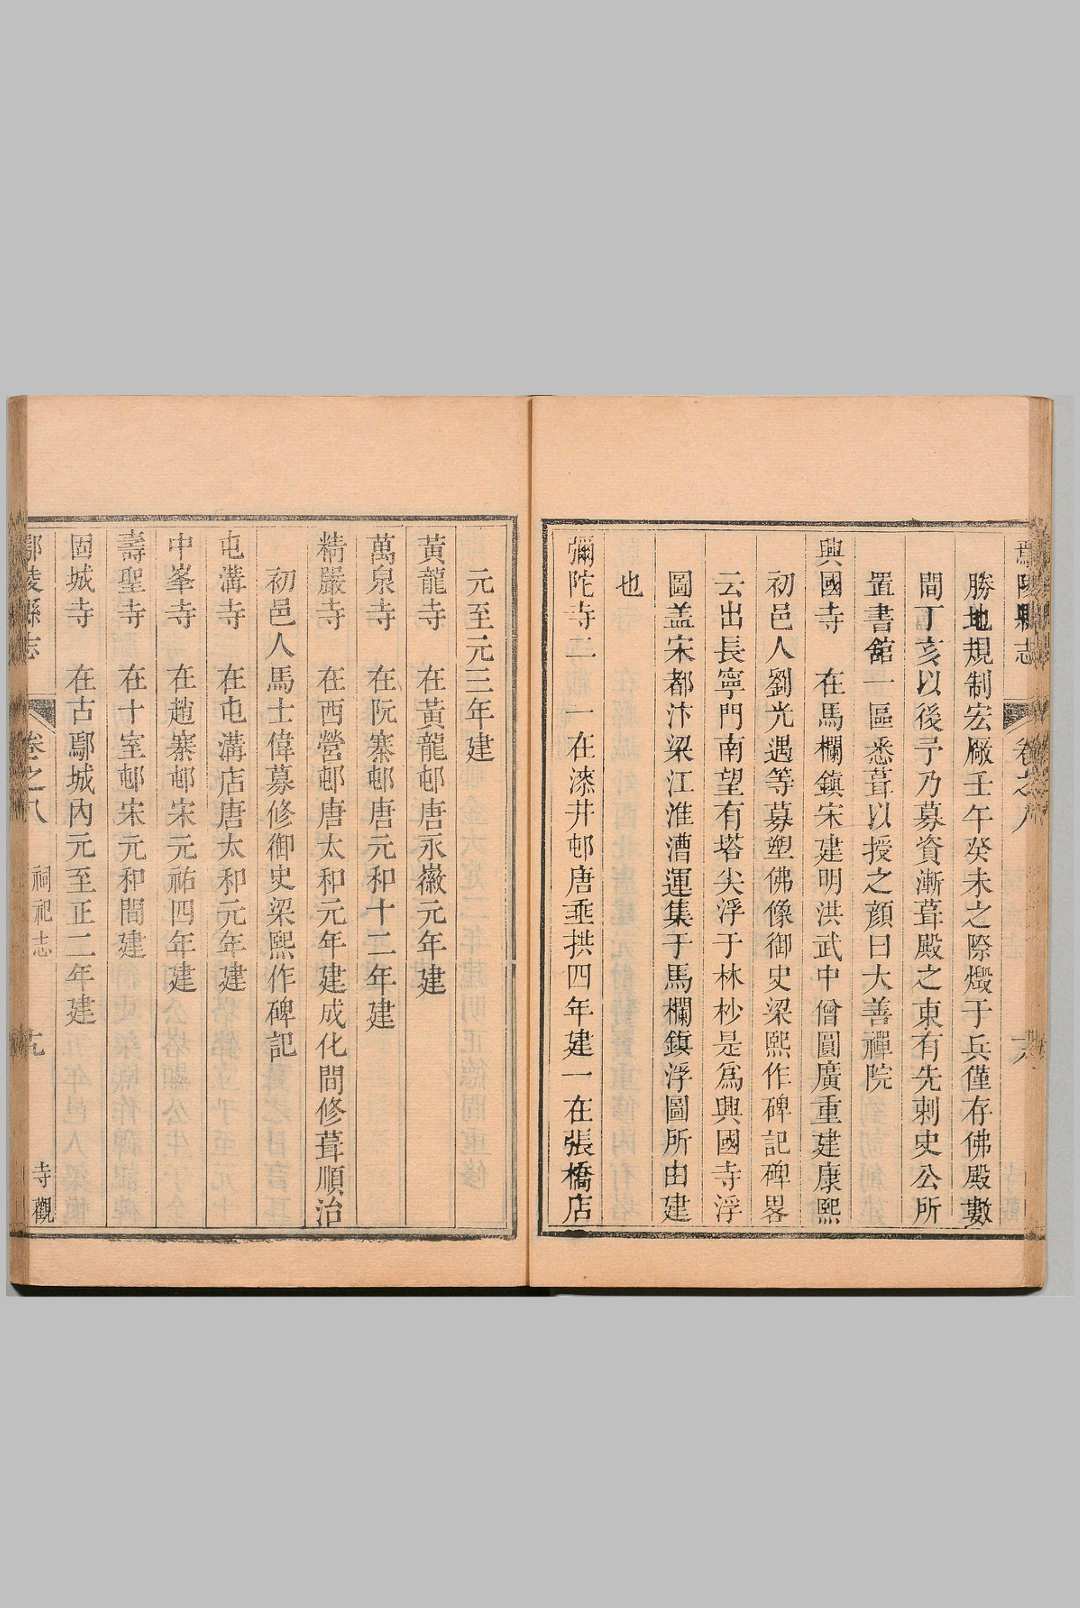 鄢陵縣志 卷之八 十八
勝地規制宏厰壬午癸未之際燬于兵僅存佛殿數
間丁亥以後予乃募資漸葺殿之東有先刺史公所
置書館一區悉葺以授之顔曰大善禪院
興國寺 在馬欄鎮宋建明洪武中僧圓廣重建康熙
初邑人劉光遇等募塑佛像御史梁熙作碑記碑畧
云出長寧門南望有塔尖浮于林杪是爲興國寺浮
圖盖宋都汴梁江淮漕運集于馬欄鎮浮圖所由建
也
彌陀寺二 一在漆井邨唐埀拱四年建一在張橋店
元至元三年建
黃龍寺 在黃龍邨唐永徽元年建
萬泉寺 在阮寨邨唐元和十二年建
精嚴寺 在西營邨唐太和元年建成化間修葺順治
初邑人馬士偉募修御史梁熙作碑記
屯溝寺 在屯溝店唐太和元年建
中峯寺 在趙寨邨宋元祐四年建
壽聖寺 在十室邨宋元和間建
固城寺 在古鄢城內元至正二年建
鄢陵縣志 卷之八 祠祀志 十九 寺觀